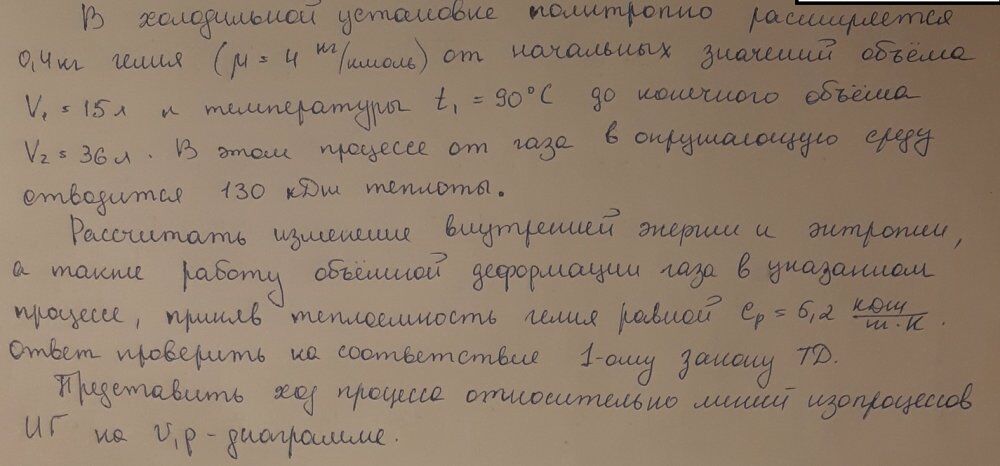 В холодильной установке политропно расширяется
0,4 кг гелия (μ = 4 кг/кмоль) от начальных значений объёма
V₁ = 15 л и температуры t₁ = 90°C до конечного объёма
V₂ = 36 л. В этом процессе от газа в окружающую среду
отводится 130 кДж теплоты.
Рассчитать изменение внутренней энергии и энтропии,
а также работу объёмной деформации газа в указанном
процессе, приняв теплоемкость гелия равной Cp = 5,2 кДж/кг·К.
Ответ проверить на соответствие 1-ому закону ТД.
Представить ход процесса относительно линий изопроцессов
ИГ на v,p-диаграмме.